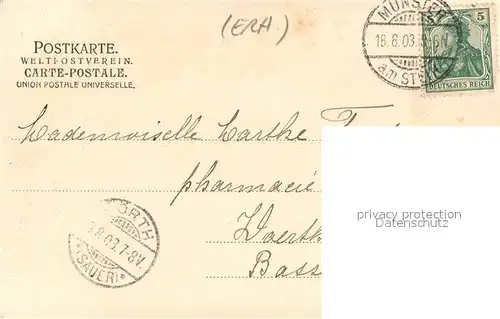 (ERH)
MÜNSTER
18.8.03.
5
DEUTSCHES REICH
POSTKARTE.
WELTPOSTVEREIN.
CARTE-POSTALE.
UNION POSTALE UNIVERSELLE.
Mademoiselle Marthe
pharmacie
Woerth
Bass
WÖRTH
.8.03.7-8V.
*(SAUER)*
privacy protection
Datenschutz